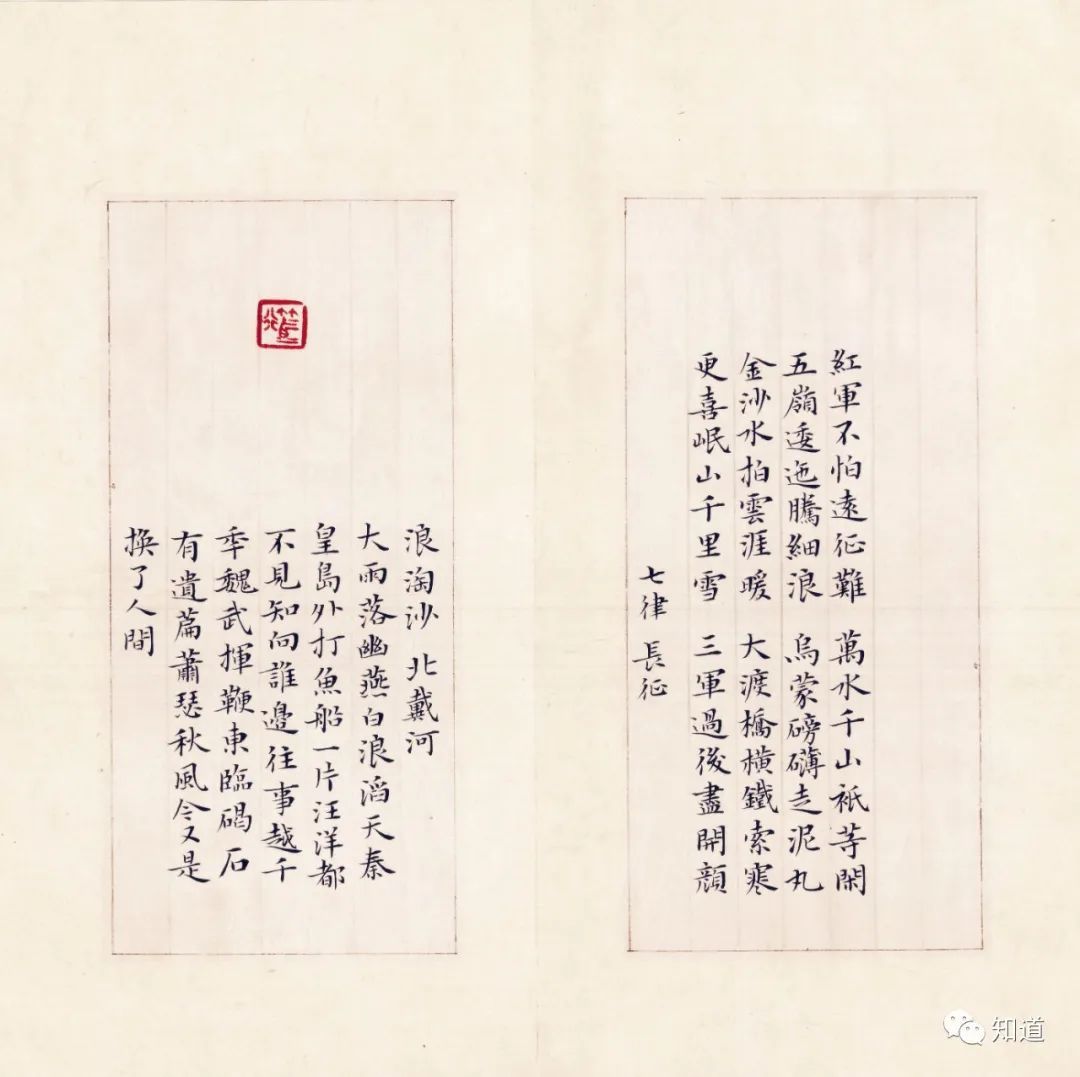 紅軍不怕遠征難 萬水千山衹等閑
五嶺逶迤騰細浪 烏蒙磅礴走泥丸
金沙水拍雲涯暖 大渡橋橫鐵索寒
更喜岷山千里雪 三軍過後盡開顏
七律 長征
浪淘沙 北戴河
大雨落幽燕白浪滔天秦
皇島外打魚船一片汪洋都
不見知向誰邊往事越千
年魏武揮鞭東臨碣石
有遺篇蕭瑟秋風今又是
換了人間
知道